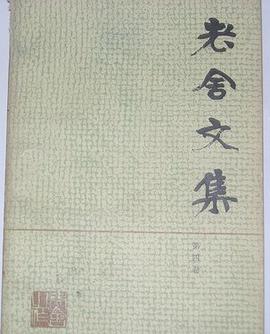 老舍文集
第四卷